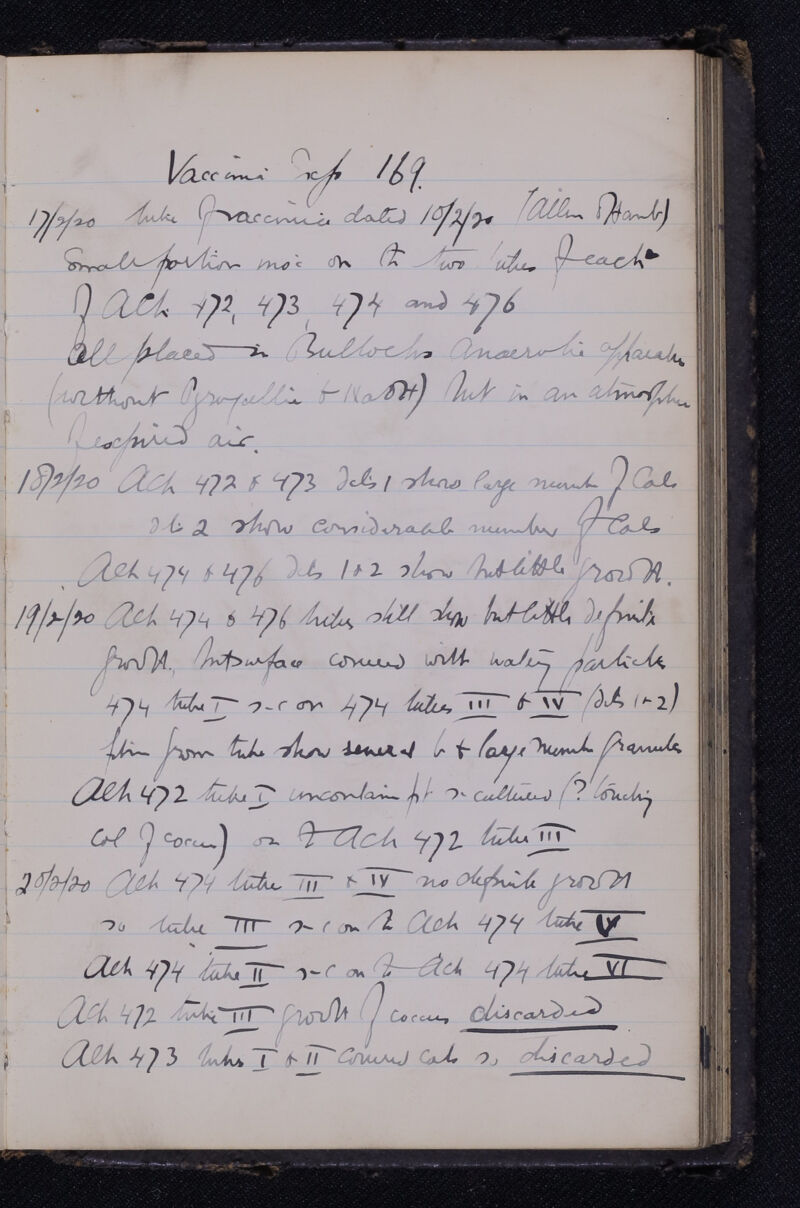 Vaccinia Exp 169.
17/2/20 tube of vaccinia dated 10/2/20 (Allen & Hanb)
Small portion inoc on to two tubes of each
of Ach 472, 473, 474 and 476
All placed in Bullochs Anaerobic apparatus
(without Pyrogallic & NaOH) but in an atmosphere
of expired air.
18/2/20 Ach 472 & 473 1 show large number of Cols
2 show considerable number of Cols
Ach 474 & 476 1 + 2 show but little growth.
19/2/20 Ach 474 & 476 tubes still show but little definite
growth, but surface covered with particles
474 tube I s-c on 474 tubes III & IV (1 + 2)
film from tube show several b + large number granules
Ach 472 tube I uncontam pt s-cultured (? touching
col of coccus) on to Ach 472 tube III
20/2/20 Ach 474 tube III + IV no definite growth
so tube III s-c on to Ach 474 tube V
Ach 474 tube II s-c on to Ach 474 tube VI
Ach 472 tube III growth of coccus discarded
Ach 473 tubes I & II covered cols so discarded